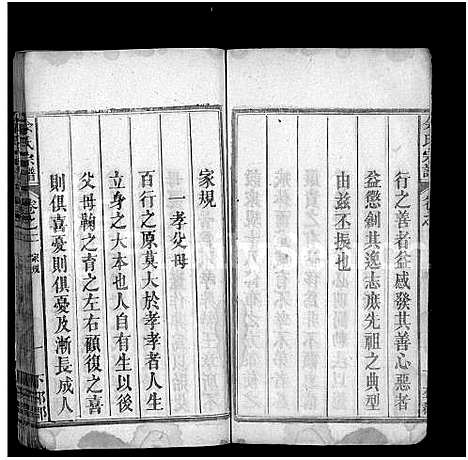 行之善者益感發其善心惡者
益懲創其逸志庶先祖之典型
由茲丕振也
家規
一孝父母
百行之原莫大於孝孝者人生
立身之大本也人自有生以後
父母鞠之育之左右顧復之喜
則俱喜憂則俱憂及漸長成人
氏宗譜
家規
一
下邳郡